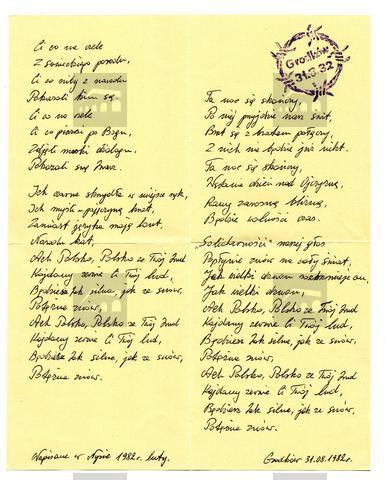 Ci co na czele
Z sowieckiego powodu,
Ci co niby z narodu
Pokazali kim są.
Ci co na czele
Ci co piersi po Bogu,
Zdjęli maski
Pokazali swą twarz.
Ich czarne skrzydła w miejsce rąk,
Ich myśli
Zamiast języka mają
Narodu kat,
Ach Polsko, Polsko ze Twój trud
Kajdany zerwie Ci Twój lud,
Będziesz tak silna, jak ze snów,
Potężna znów.
Ach Polsko, Polsko ze Twój trud
Kajdany zerwie Ci Twój lud,
Będziesz tak silna, jak ze snów,
Potężna znów.
Napisane w Nysie 1982r. luty.
Grodków
31.8.82
Ta noc się skończy,
Po niej przyjdzie nasz świt,
Brat się z bratem połączy,
Z nich nie będzie już nikt.
Ta noc się skończy,
Wstanie dzień nad Ojczyzną,
Rany zarosną blizną,
Będzie wolności czas.
Solidarności nowy głos
Popłynie znów na cały świat,
Jak wielki dzwon
Jak wielki dzwon,
Ach Polsko, Polsko ze Twój trud
Kajdany zerwie Ci Twój lud,
Będziesz tak silna, jak ze snów,
Potężna znów.
Ach Polsko, Polsko ze Twój trud
Kajdany zerwie Ci Twój lud,
Będziesz tak silna, jak ze snów,
Potężna znów.
Grodków 31.08.1982r.